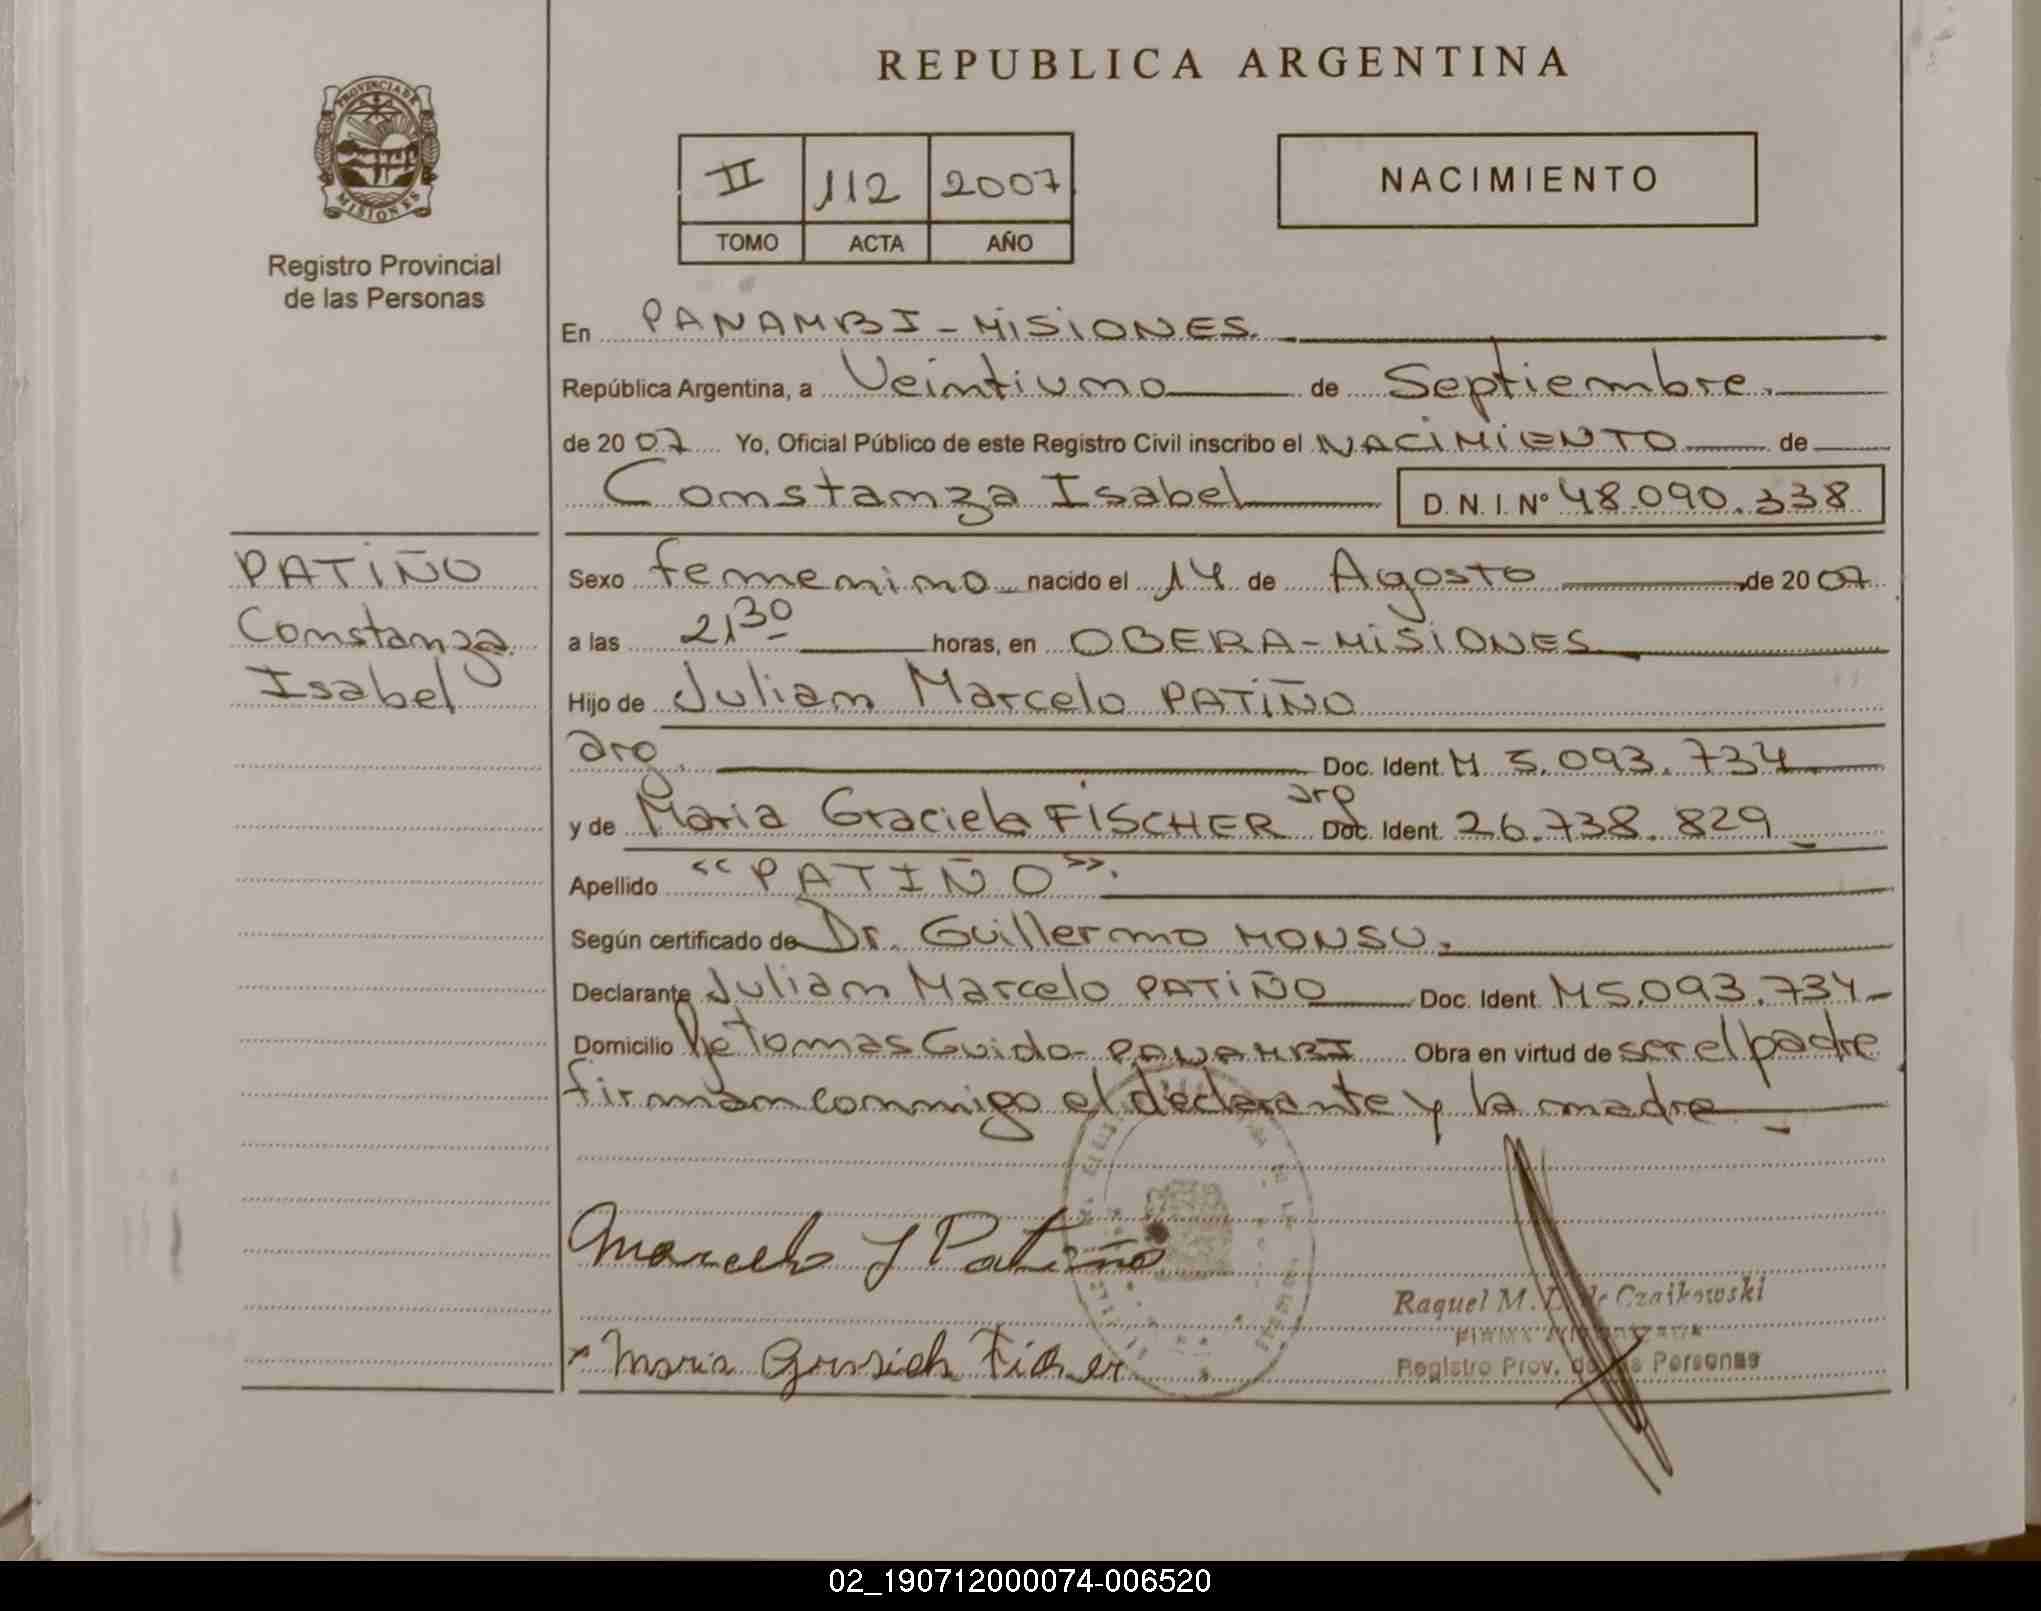 REPUBLICA ARGENTINA
PROVINCIA DE
MISIONES
Registro Provincial
de las Personas
II 112 2007
TOMO ACTA AÑO
NACIMIENTO
En PANAMBI - MISIONES.
República Argentina, a Veintiuno de Septiembre.
de 20 07 Yo, Oficial Público de este Registro Civil inscribo el NACIMIENTO de
Constanza Isabel D.N.I. Nº 48.090.338
PATIÑO
Constanza
Isabel
Sexo femenino nacido el 14 de Agosto de 20 07
a las 21,30 horas, en OBERA - MISIONES
Hijo de Julian Marcelo PATIÑO
arg. Doc. Ident. M 5.093.734
y de Maria Graciela FISCHER arg Doc. Ident. 26.738.829
Apellido "PATIÑO".
Según certificado de Dr. Guillermo MONSU.
Declarante Julian Marcelo PATIÑO Doc. Ident. M5.093.734
Domicilio Tomas Guido - PANAMBI Obra en virtud de ser el padre
firman conmigo el declarante y la madre
Marcelo J Patiño
Raquel M. Czaikowski
Registro Prov. Personas
x Maria Fischer
02_190712000074-006520